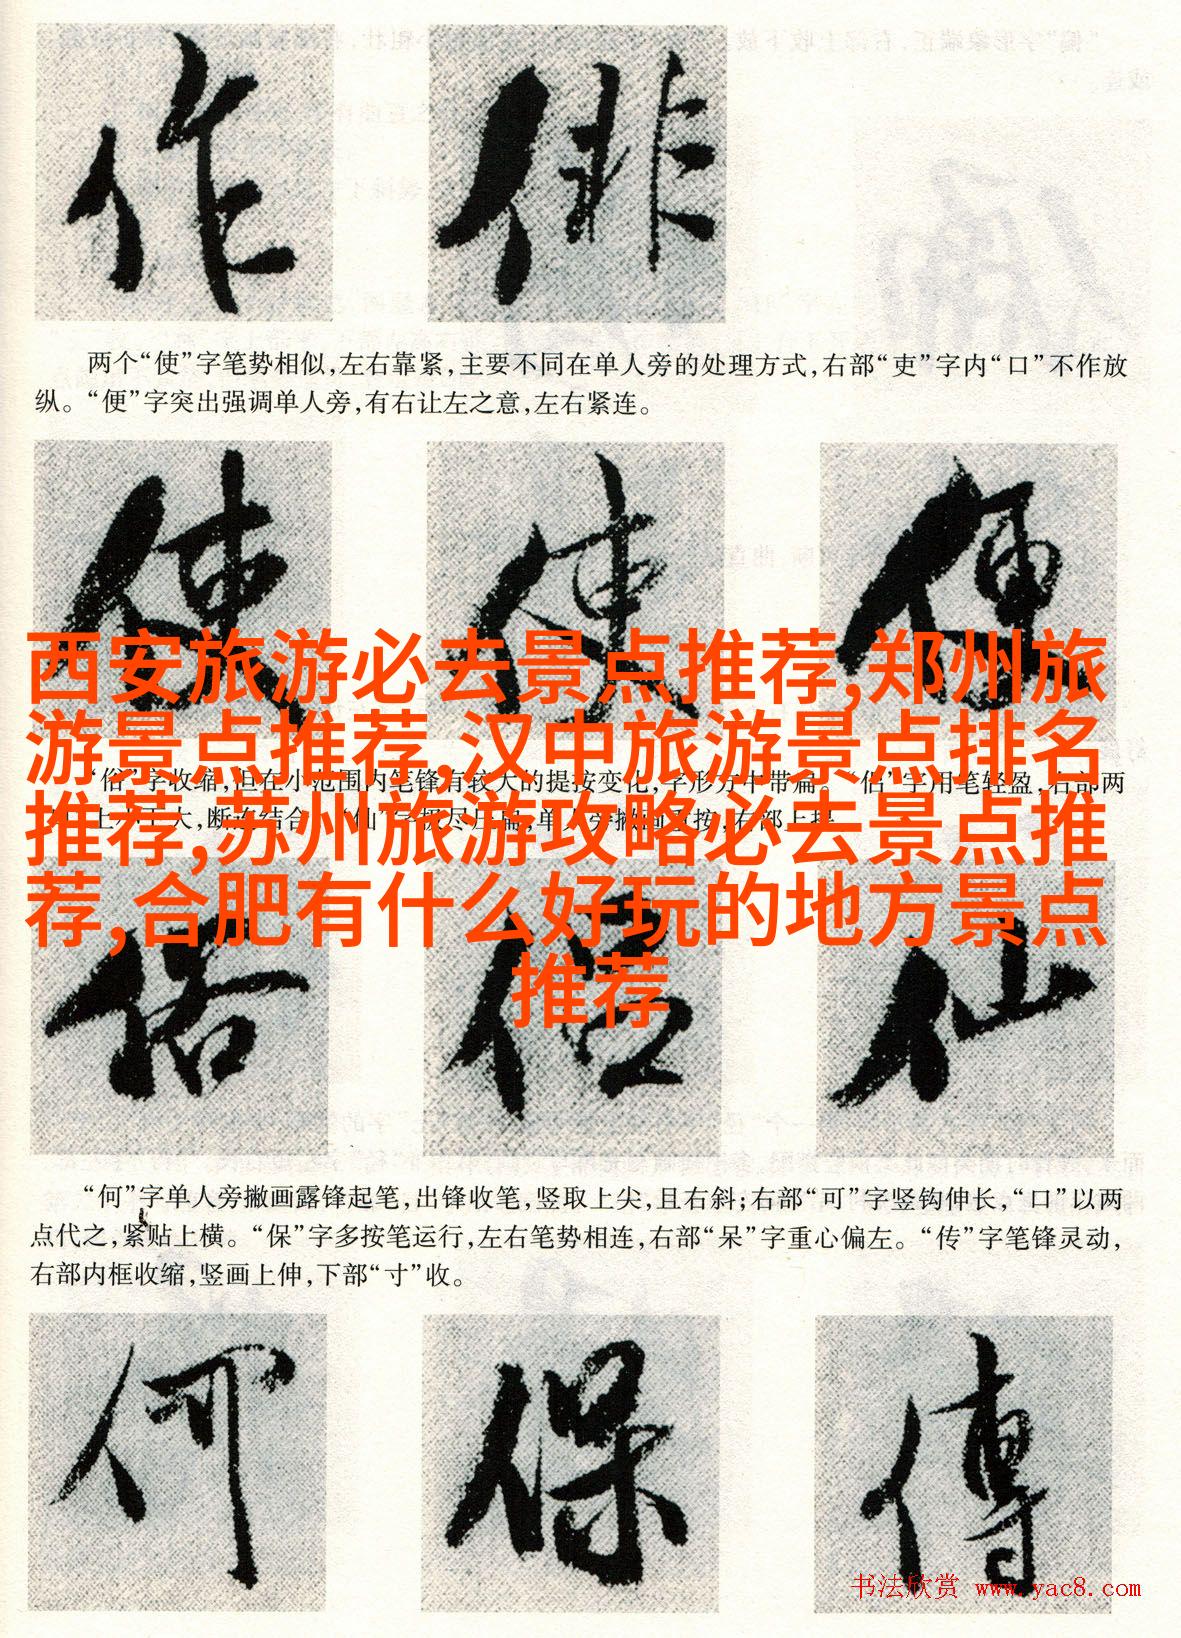 作 俳
两个“使”字笔势相似,左右靠紧,主要不同在单人旁的处理方式,右部“吏”字内“口”不作放
纵。“便”字突出强调单人旁,有右让左之意,左右紧连。
使 使 便
西安旅游必去景点推荐,郑州旅
游景点推荐,汉中旅游景点排名
推荐,苏州旅游攻略必去景点推
荐,合肥有什么好玩的地方景点
推荐
“俗”字收缩,但在小范围内笔锋有较大的提按变化,字形方中带扁。“侣”字用笔轻盈,右部两
上小下大,断连结合。“仙”字极尽压扁,单人旁撇画重按,右部上提
俗 侣 仙
“何”字单人旁撇画露锋起笔,出锋收笔,竖取上尖,且右斜;右部“可”字竖钩伸长,“口”以两
点代之,紧贴上横。“保”字多按笔运行,左右笔势相连,右部“呆”字重心偏左。“传”字笔锋灵动,
右部内框收缩,竖画上伸,下部“寸”收。
何 保 傳
书法欣赏 www.yac8.com